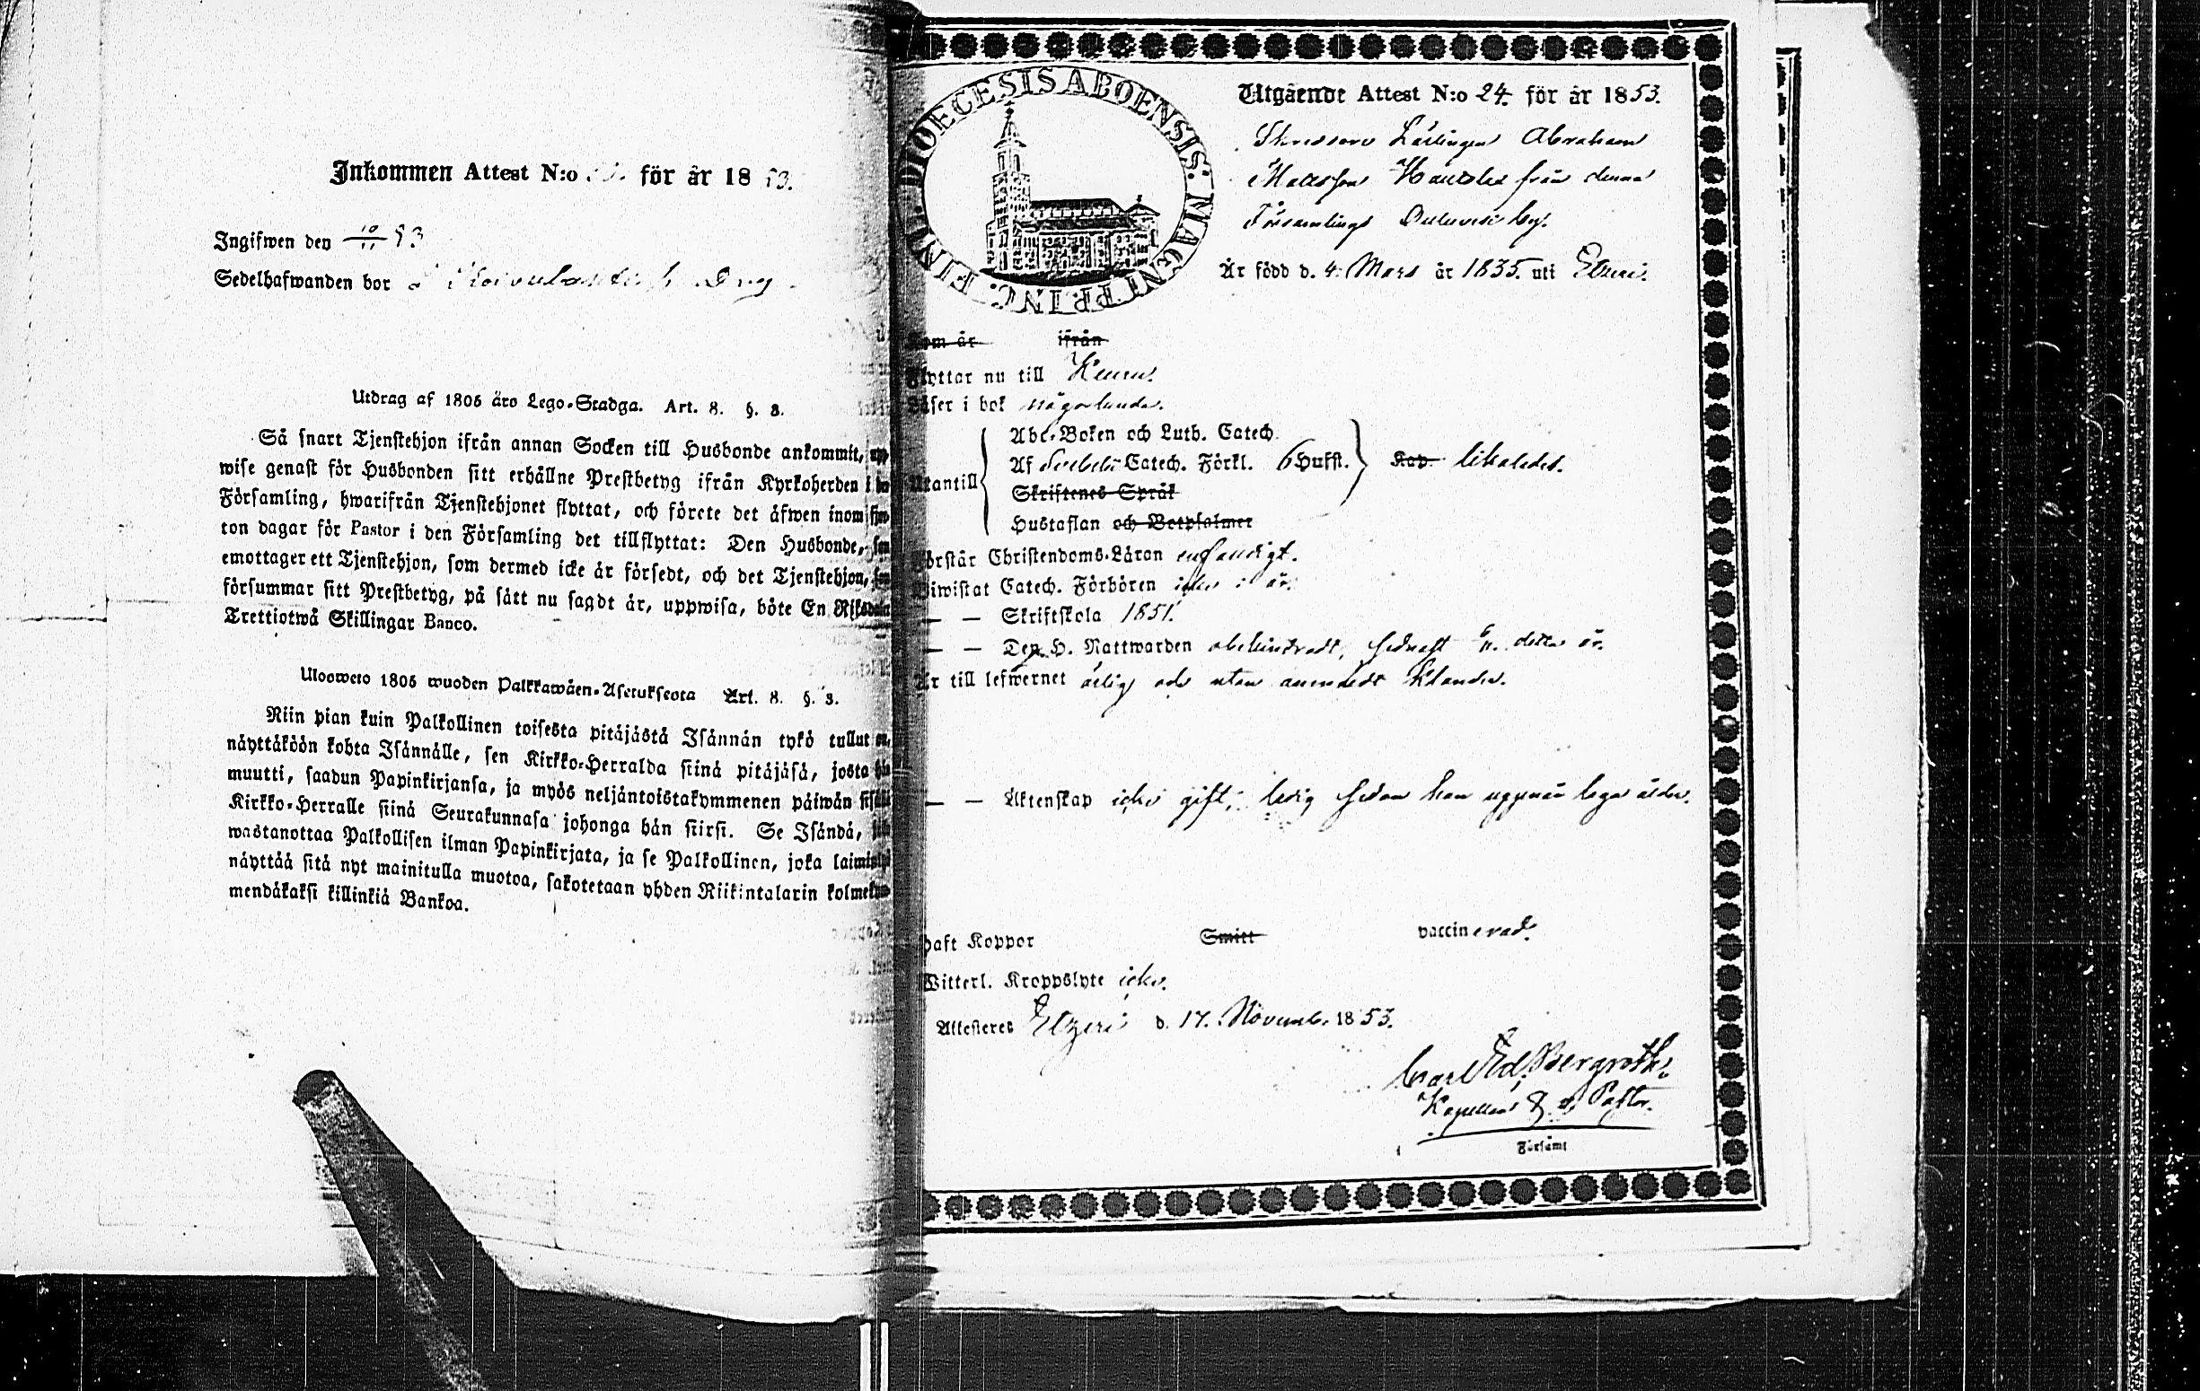 Inkommen Attest N:o för år 1853.
Ingifwen den 10/11 53
Sedelhafwanden bor
Utdrag af 1805 års Lego-Stadga. Art. 8. §. 3.
Så snart Tjenstehjon ifrån annan Socken till Husbonde ankommit, upp-
wise genast för Husbonden sitt erhållne Prestbetyg ifrån Kyrkoherden i
Församling, hwarifrån Tjenstehjonet flyttat, och förete det äfwen inom
ton dagar för Pastor i den Församling det tillflyttat: Den Husbonde,
emottager ett Tjenstehjon, som dermed icke är försedt, och det Tjenstehjon,
försummar sitt Prestbetyg, på sätt nu sagdt är, uppwisa, böte En Riksdaler
Trettiotwå Skillingar Banco.
Uloswето 1805 wuoden Palkkawäen-Asetuksesta Art. 8. §. 3.
Niin pian kuin Palkollinen toisesta pitäjästä Isännän tykö tullut on,
näyttäköön kohta Isännälle, sen Kirkko-Herralda siinä pitäjäsä, josta hän
muutti, saadun Papinkirjansa, ja myös neljäntoistakymmenen päiwän sisällä
Kirkko-Herralle siinä Seurakunnasa johonga hän siirsi. Se Isändä,
wastanottaa Palkollisen ilman Papinkirjata, ja se Palkollinen, joka laiminlyö
näyttää sitä nyt mainitulla muotoa, sakotetaan yhden Riikintalarin kolmekym-
mendäkaksi killinkiä Bankoa.
DIOECESIS ABOENSIS. MAGNI PRINC. FINL.
Utgående Attest N:o 24. för år 1853.
Skreddare Lärlingen Abraham
Mattsson från denna
Församlings by.
Är född d. 4. Mars år 1835. uti Etseri.
Kom år ifrån
Flyttar nu till Keuru.
Läser i bok någorlunda.
Utantill
Abc-Boken och Luth. Catech.
Af Svebelii Catech. Förkl. 6 Hufst. Kap. likaledes.
Skriftenes Språk
Hustaflan och Botpsalmer
Förstår Christendoms-Läran enfaldigt.
Biwistat Catech. Förhören icke i år.
— — Skriftskola 1851.
— — Den H. Nattwarden obehindradt, sednast detta år.
Är till lefwernet ärlig och utan anmäldt klander.
— — Äktenskap icke gift, ledig sedan han uppnår laga ålder.
Haft Koppor Smitt vaccinerad.
Witterl. Kroppslyte icke.
Attesteres Etzeri d. 17. Novemb. 1853.
Carl Ed. Bergroth,
Kapellan & v. Pastor.
Församl